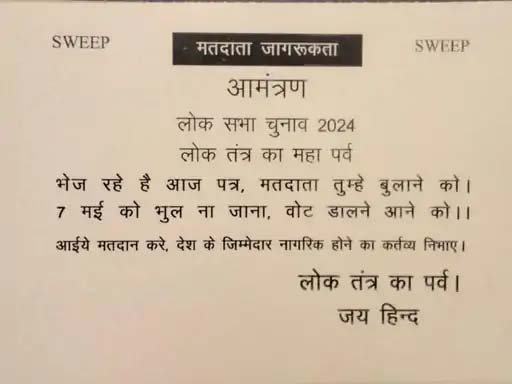 SWEEP मतदाता जागरूकता SWEEP
आमंत्रण
लोक सभा चुनाव 2024
लोक तंत्र का महा पर्व
भेज रहे है आज पत्र, मतदाता तुम्हे बुलाने को।
7 मई को भुल ना जाना, वोट डालने आने को।।
आईये मतदान करे, देश के जिम्मेदार नागरिक होने का कर्तव्य निभाए।
लोक तंत्र का पर्व।
जय हिन्द